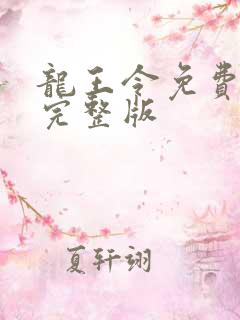 龍王令免費
完整版
夏轩翊